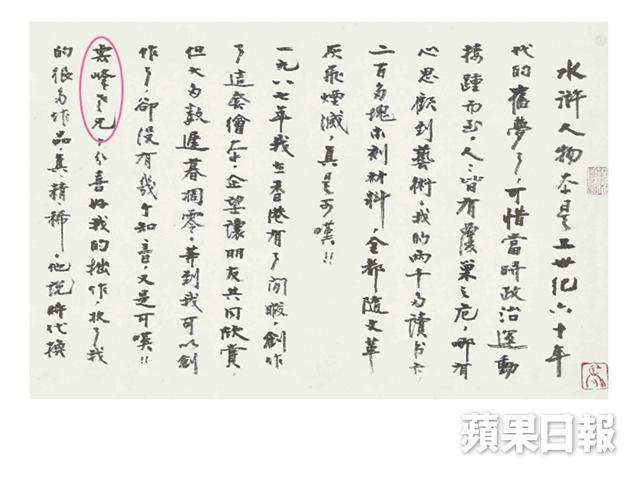 水滸人物本是上世纪六十年
代的舊夢了,可惜當时政治運動
接踵而至,人人皆有覆巢之危,哪有
心思顧到藝術。我的兩千多讀书卡,
二百多塊木刻材料,全都隨文革
灰飛煙滅,真是可嘆!!
一九八七年我在香港有了閒暇,創作
了這套繪本,企望讓朋友共同欣賞,
但大多数遲暮凋零,等到我可以創
作了,卻没有幾个知音,又是可嘆!!
雲峰老兄,分喜好我的拙作,收了我
的很多作品,真精稀。他說時代換
蘋果日報